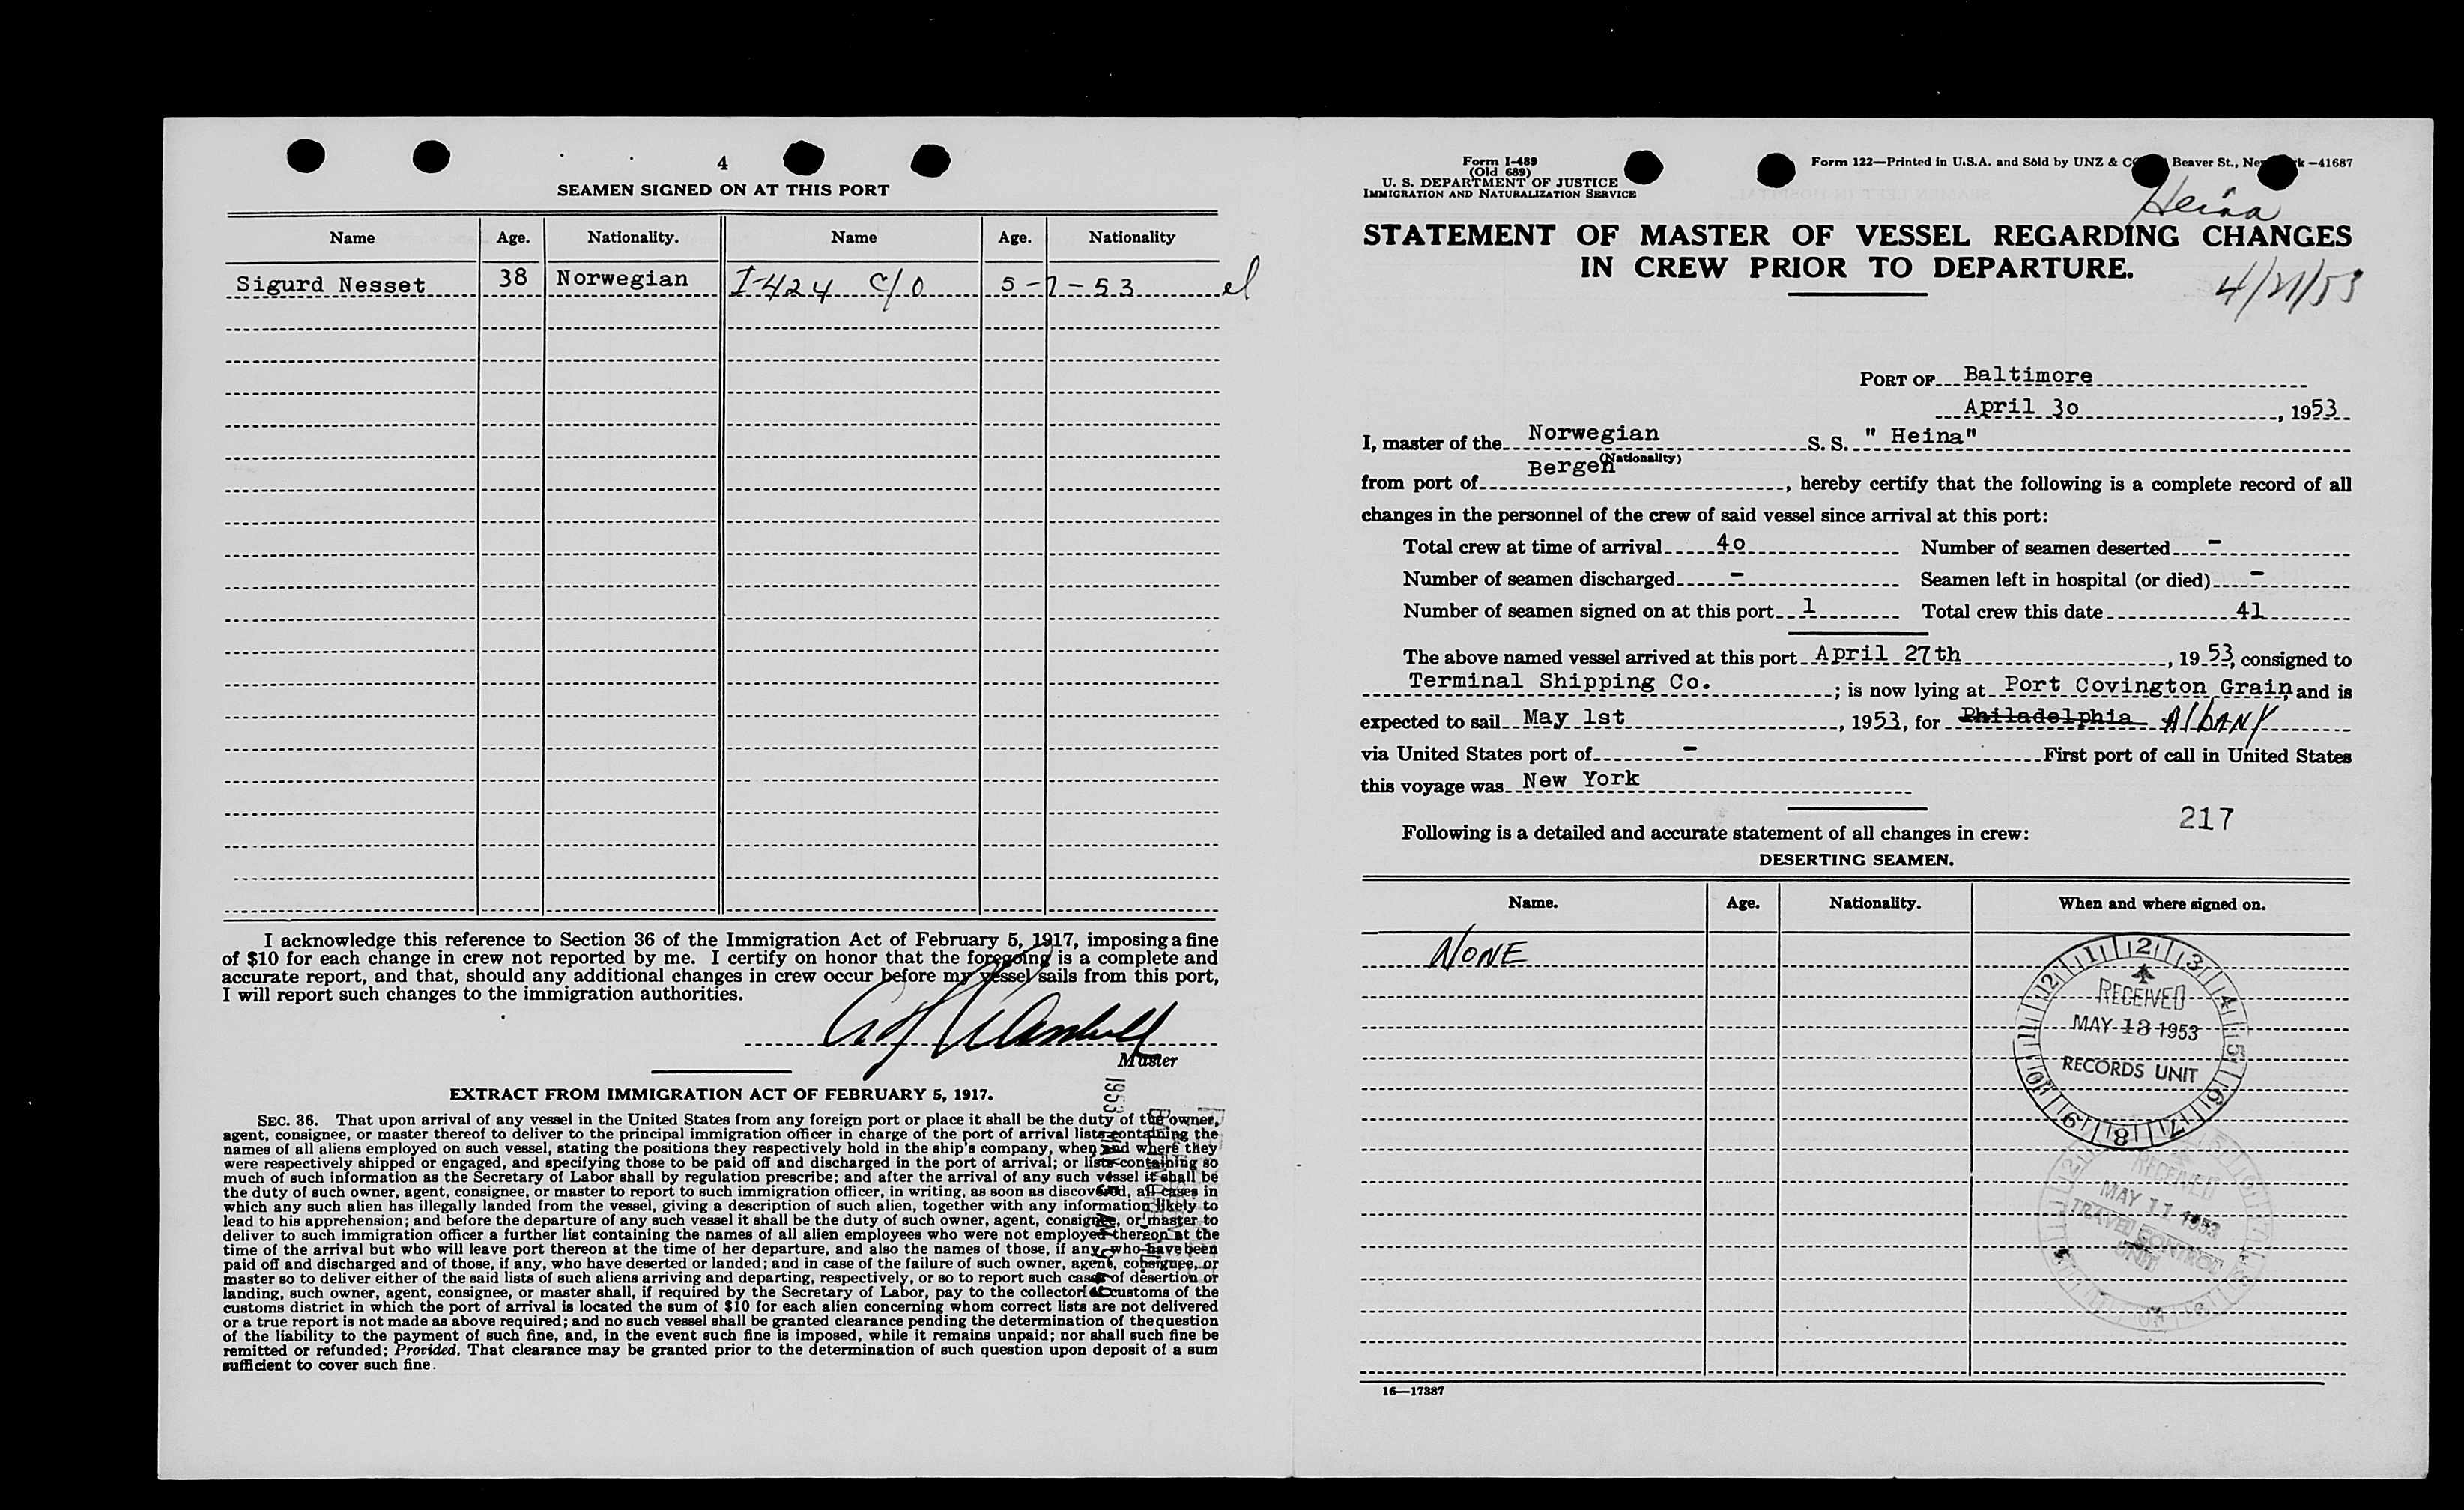 4
SEAMEN SIGNED ON AT THIS PORT
Name Age. Nationality. Name Age. Nationality
Sigurd Nesset 38 Norwegian I-424 C/O 5-1-53 el
I acknowledge this reference to Section 36 of the Immigration Act of February 5, 1917, imposing a fine
of $10 for each change in crew not reported by me. I certify on honor that the foregoing is a complete and
accurate report, and that, should any additional changes in crew occur before my vessel sails from this port,
I will report such changes to the immigration authorities.
Master
EXTRACT FROM IMMIGRATION ACT OF FEBRUARY 5, 1917.
SEC. 36. That upon arrival of any vessel in the United States from any foreign port or place it shall be the duty of the owner,
agent, consignee, or master thereof to deliver to the principal immigration officer in charge of the port of arrival lists containing the
names of all aliens employed on such vessel, stating the positions they respectively hold in the ship's company, when and where they
were respectively shipped or engaged, and specifying those to be paid off and discharged in the port of arrival; or lists containing so
much of such information as the Secretary of Labor shall by regulation prescribe; and after the arrival of any such vessel it shall be
the duty of such owner, agent, consignee, or master to report to such immigration officer, in writing, as soon as discovered, all cases in
which any such alien has illegally landed from the vessel, giving a description of such alien, together with any information likely to
lead to his apprehension; and before the departure of any such vessel it shall be the duty of such owner, agent, consignee, or master to
deliver to such immigration officer a further list containing the names of all alien employees who were not employed thereon at the
time of the arrival but who will leave port thereon at the time of her departure, and also the names of those, if any, who have been
paid off and discharged and of those, if any, who have deserted or landed; and in case of the failure of such owner, agent, consignee, or
master so to deliver either of the said lists of such aliens arriving and departing, respectively, or so to report such cases of desertion or
landing, such owner, agent, consignee, or master shall, if required by the Secretary of Labor, pay to the collector of customs of the
customs district in which the port of arrival is located the sum of $10 for each alien concerning whom correct lists are not delivered
or a true report is not made as above required; and no such vessel shall be granted clearance pending the determination of the question
of the liability to the payment of such fine, and, in the event such fine is imposed, while it remains unpaid; nor shall such fine be
remitted or refunded; Provided, That clearance may be granted prior to the determination of such question upon deposit of a sum
sufficient to cover such fine.
1953 MAY
Form I-489
(Old 689)
U. S. DEPARTMENT OF JUSTICE
IMMIGRATION AND NATURALIZATION SERVICE
Form 122—Printed in U.S.A. and Sold by UNZ & Beaver St., —41687
Heina
STATEMENT OF MASTER OF VESSEL REGARDING CHANGES
IN CREW PRIOR TO DEPARTURE.
4/21/53
PORT OF Baltimore
April 30, 1953
I, master of the Norwegian S. S. " Heina"
(Nationality)
from port of Bergen, hereby certify that the following is a complete record of all
changes in the personnel of the crew of said vessel since arrival at this port:
Total crew at time of arrival 40 Number of seamen deserted -
Number of seamen discharged - Seamen left in hospital (or died) -
Number of seamen signed on at this port 1 Total crew this date 41
The above named vessel arrived at this port April 27th, 1953, consigned to
Terminal Shipping Co. ; is now lying at Port Covington Grain, and is
expected to sail May 1st, 1953, for Philadelphia AlbANY
via United States port of - First port of call in United States
this voyage was New York
217
Following is a detailed and accurate statement of all changes in crew:
DESERTING SEAMEN.
Name. Age. Nationality. When and where signed on.
NONE
12 1 2 3 4 5 6 7 8 9 10 11
RECEIVED
MAY 13 1953
RECORDS UNIT
RECEIVED
MAY 11 1953
TRAVEL CONTROL
UNIT
16—17387